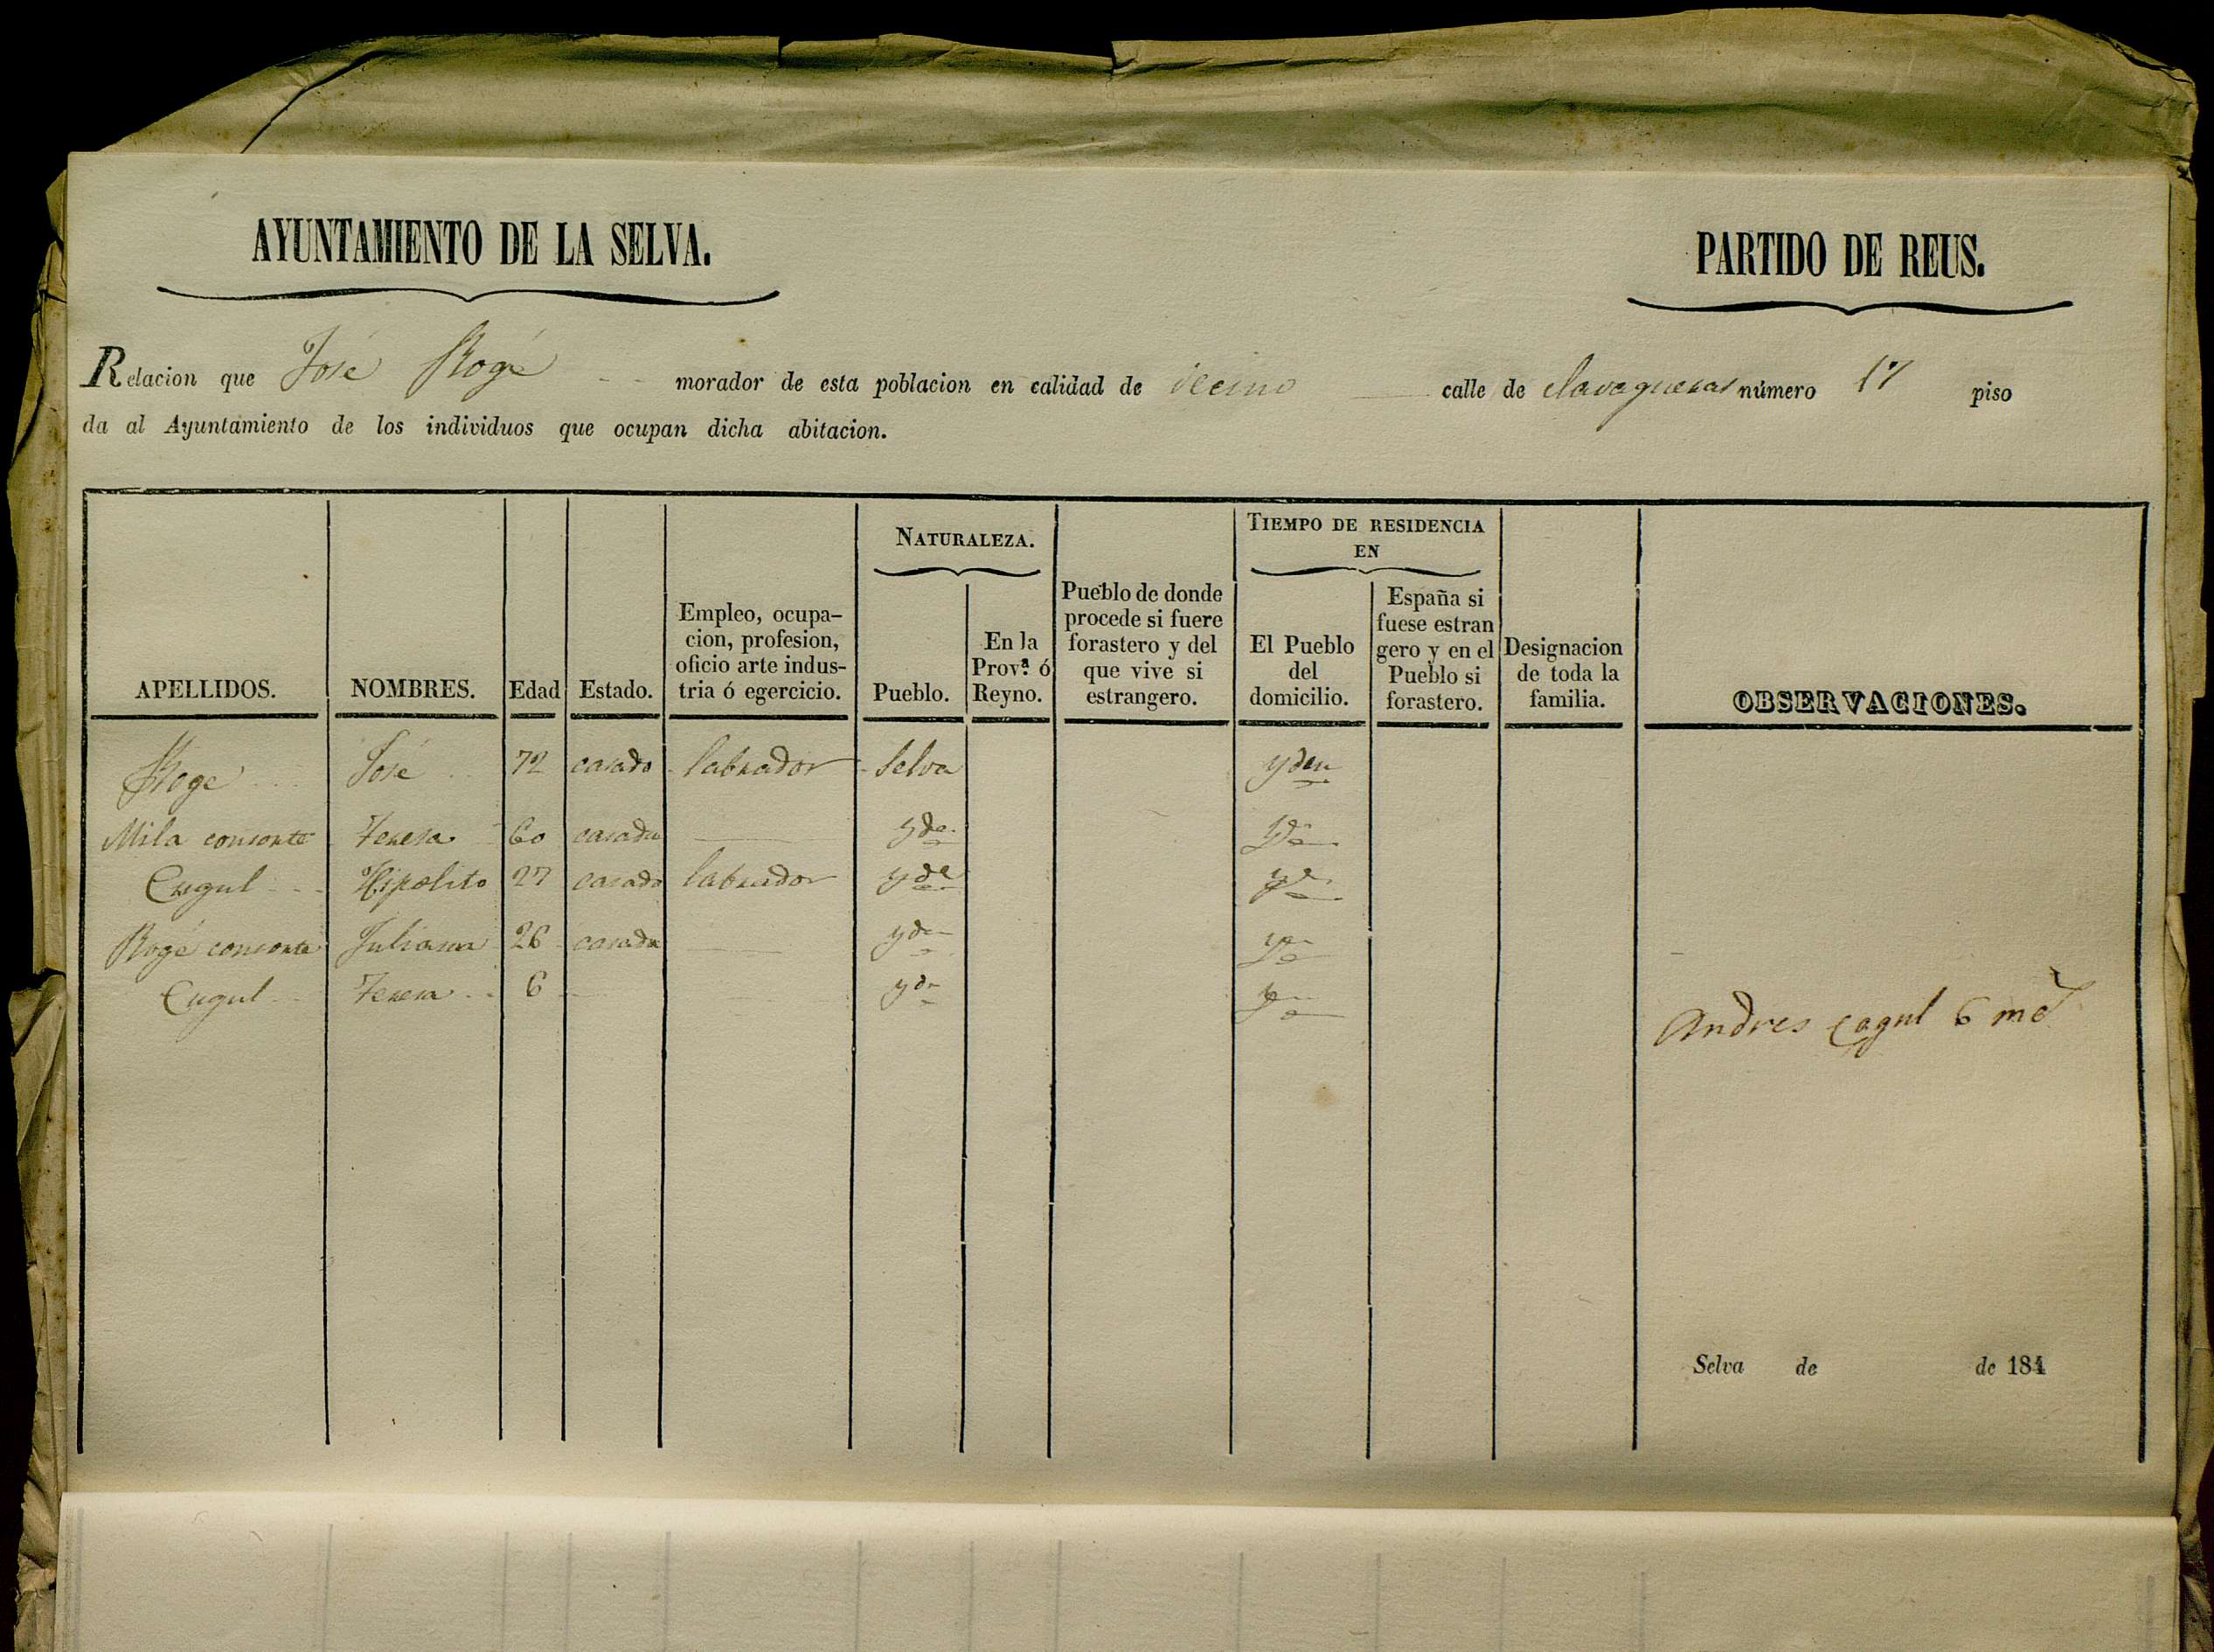 AYUNTAMIENTO DE LA SELVA.
PARTIDO DE REUS.
Relacion que José Rogé morador de esta poblacion en calidad de vecino calle de clavagueras número 17 piso
da al Ayuntamiento de los individuos que ocupan dicha abitacion.
NATURALEZA.
TIEMPO DE RESIDENCIA
EN
APELLIDOS.
NOMBRES.
Edad
Estado.
Empleo, ocupa-
cion, profesion,
oficio arte indus-
tria ó egercicio.
Pueblo.
En la
Prov.ª ó
Reyno.
Pueblo de donde
procede si fuere
forastero y del
que vive si
estrangero.
El Pueblo
del
domicilio.
España si
fuese estran
gero y en el
Pueblo si
forastero.
Designacion
de toda la
familia.
OBSERVACIONES.
Roge José 72 casado labrador Selva yden
Mila consorte Teresa 60 casada yde yde
Cugul Hipolito 27 casado labrador yde yde
Rogé consorte Juliana 26 casada yde
Cugul Teresa 6 yde
Andres Cagul 6 mˢ
Selva de de 184